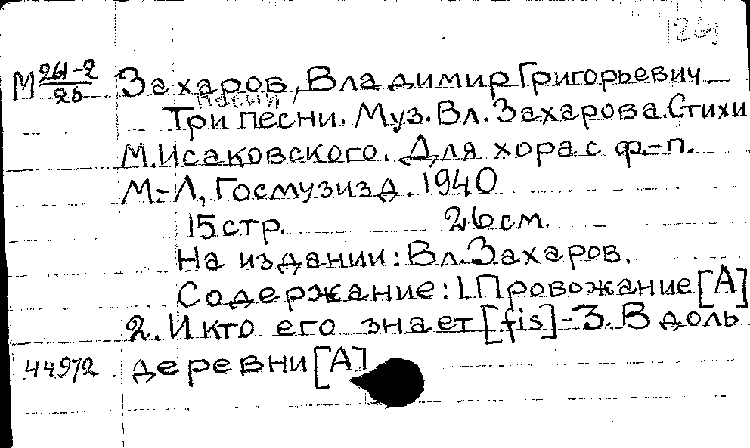 1261
М 261-2/26 Захаров, Владимир Григорьевич
Три песни. Муз. Вл. Захарова. Стихи
М. Исаковского. Для хора с ф.-п.
М.-Л., Госмузизд. 1940
15 стр. 26 см.
На издании: Вл. Захаров.
Содержание: 1. Провожание [A]
2. И кто его знает [fis] - 3. Вдоль
44972 деревни [A]